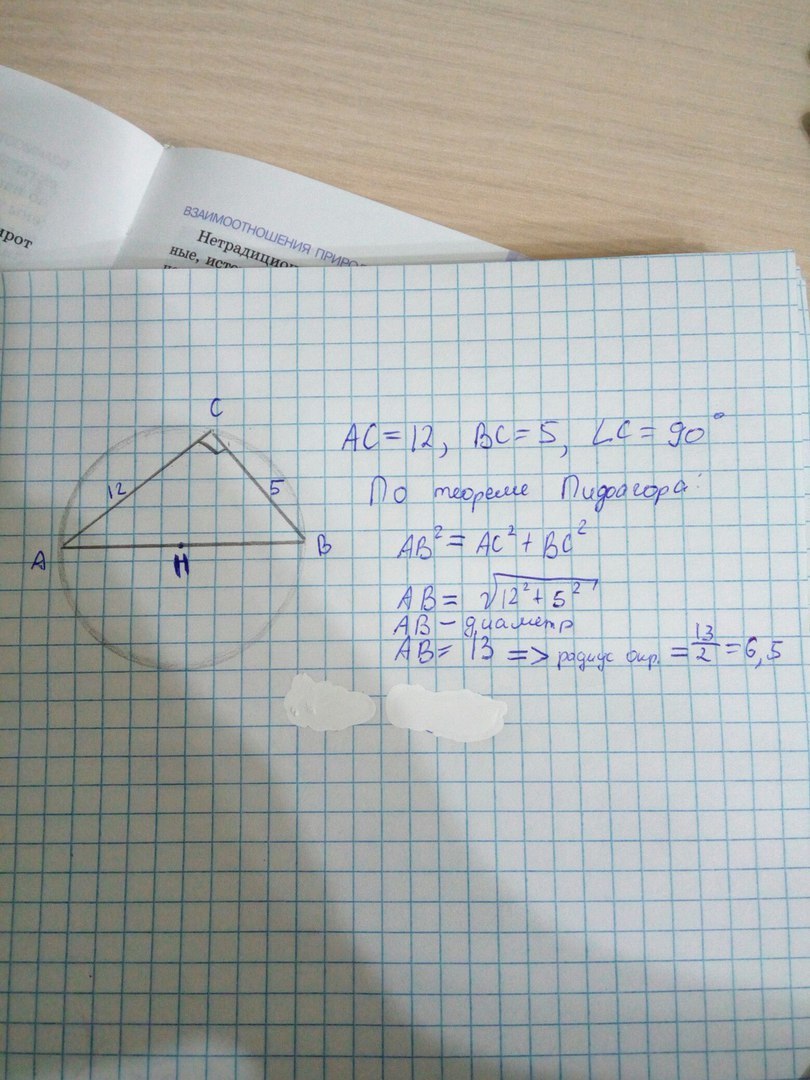 ирот
ВЗАИМООТНОШЕНИЯ ПРИРОД
Нетрадицион
ные, исто
C
12
5
A
H
B
AC = 12, BC = 5, ∠C = 90°
По теореме Пифагора:
AB² = AC² + BC²
AB = √12² + 5²
AB - диаметр
AB = 13 => радиус окр. = 13/2 = 6,5